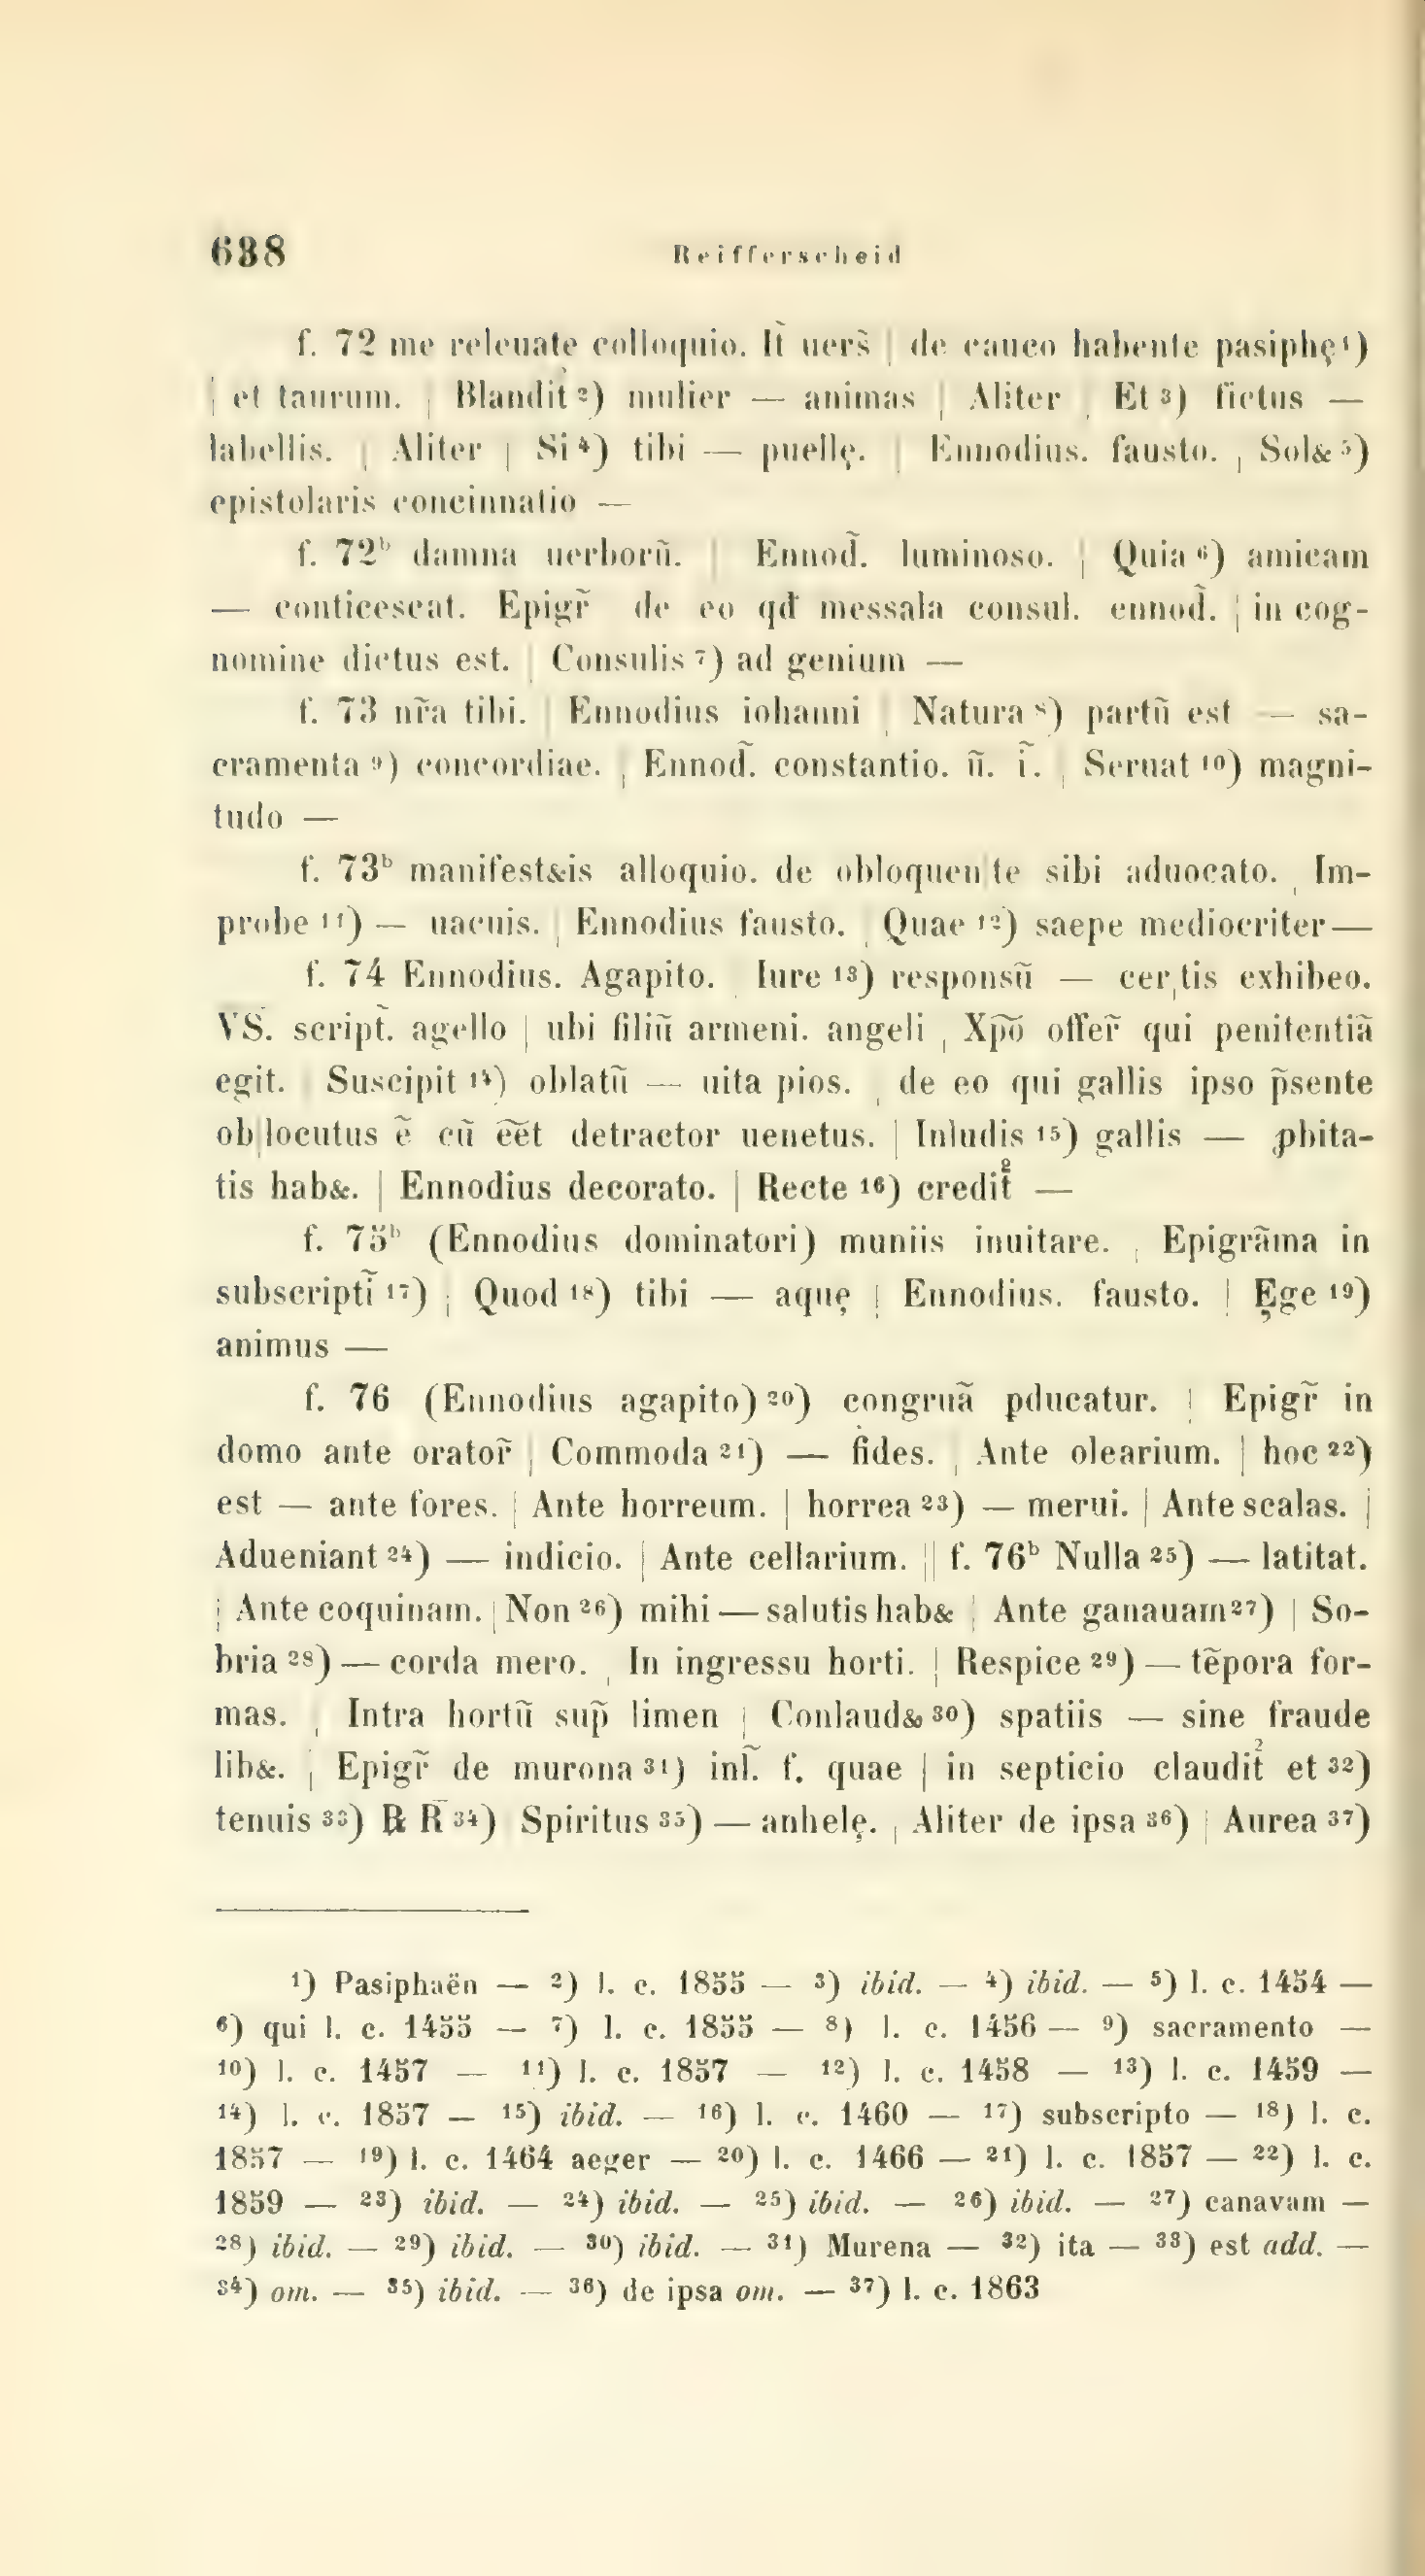 638 Reifferscheid
f. 72 me releuate colloquio. It̃ uers̃ | de cauco habente pasiphę ¹)
| et taurum. | Blandit ²) mulier — animas | Aliter | Et ³) fictus —
labellis. | Aliter | Si ⁴) tibi — puellę. | Ennodius. fausto. | Sol& ⁵)
epistolaris concinnatio —
f. 72ᵇ damna uerborũ. | Ennod̃. luminoso. | Quia ⁶) amicam
— conticescat. Epigr̃ de eo qđ messala consul. ennod̃. | in cog-
nomine dictus est. | Consulis ⁷) ad genium —
f. 73 nr̃a tibi. | Ennodius iohanni | Natura ⁸) partũ est — sa-
cramenta ⁹) concordiae. | Ennod̃. constantio. ũ. ĩ. | Seruat ¹⁰) magni-
tudo —
f. 73ᵇ manifest&is alloquio. de obloquen|te sibi aduocato. | Im-
probe ¹¹) — uacuis. | Ennodius fausto. | Quae ¹²) saepe mediocriter—
f. 74 Ennodius. Agapito. | Iure ¹³) responsũ — cer|tis exhibeo.
VS. script̃. agello | ubi filiũ armeni. angeli | Xp̃o offer̃ qui penitentiã
egit. | Suscipit ¹⁴) oblatũ — uita pios. | de eo qui gallis ipso p̃sente
ob|locutus ẽ cũ ẽẽt detractor uenetus. | Inludis ¹⁵) gallis — ꝓbita-
tis hab&. | Ennodius decorato. | Recte ¹⁶) credit̊ —
f. 75ᵇ (Ennodius dominatori) muniis inuitare. | Epigrãma in
subscriptĩ ¹⁷) | Quod ¹⁸) tibi — aquę | Ennodius. fausto. | Ęge ¹⁹)
animus —
f. 76 (Ennodius agapito) ²⁰) congruã pducatur. | Epigr̃ in
domo ante orator̃ | Commoda ²¹) — fides. | Ante olearium. | hoc ²²)
est — ante fores. | Ante horreum. | horrea ²³) — merui. | Ante scalas. |
Adueniant ²⁴) — indicio. | Ante cellarium. || f. 76ᵇ Nulla ²⁵) — latitat.
| Ante coquinam. | Non ²⁶) mihi — salutis hab& | Ante ganauam ²⁷) | So-
bria ²⁸) — corda mero. | In ingressu horti. | Respice ²⁹) — tẽpora for-
mas. | Intra hortũ sup̃ limen | Conlaud& ³⁰) spatiis — sine fraude
lib&. | Epigr̃ de murona ³¹) inl̃. f. quae | in septicio claudit̉ et ³²)
tenuis ³³) ꝶ R̄ ³⁴) Spiritus ³⁵) — anhelę. | Aliter de ipsa ³⁶) | Aurea ³⁷)
¹) Pasiphaën — ²) l. c. 1855 — ³) ibid. — ⁴) ibid. — ⁵) l. c. 1454 —
⁶) qui l. c. 1455 — ⁷) l. c. 1855 — ⁸) l. c. 1456 — ⁹) sacramento —
¹⁰) l. c. 1457 — ¹¹) l. c. 1857 — ¹²) l. c. 1458 — ¹³) l. c. 1459 —
¹⁴) l. c. 1857 — ¹⁵) ibid. — ¹⁶) l. c. 1460 — ¹⁷) subscripto — ¹⁸) l. c.
1857 — ¹⁹) l. c. 1464 aeger — ²⁰) l. c. 1466 — ²¹) l. c. 1857 — ²²) l. c.
1859 — ²³) ibid. — ²⁴) ibid. — ²⁵) ibid. — ²⁶) ibid. — ²⁷) canavam —
²⁸) ibid. — ²⁹) ibid. — ³⁰) ibid. — ³¹) Murena — ³²) ita — ³³) est add. —
³⁴) om. — ³⁵) ibid. — ³⁶) de ipsa om. — ³⁷) l. c. 1863